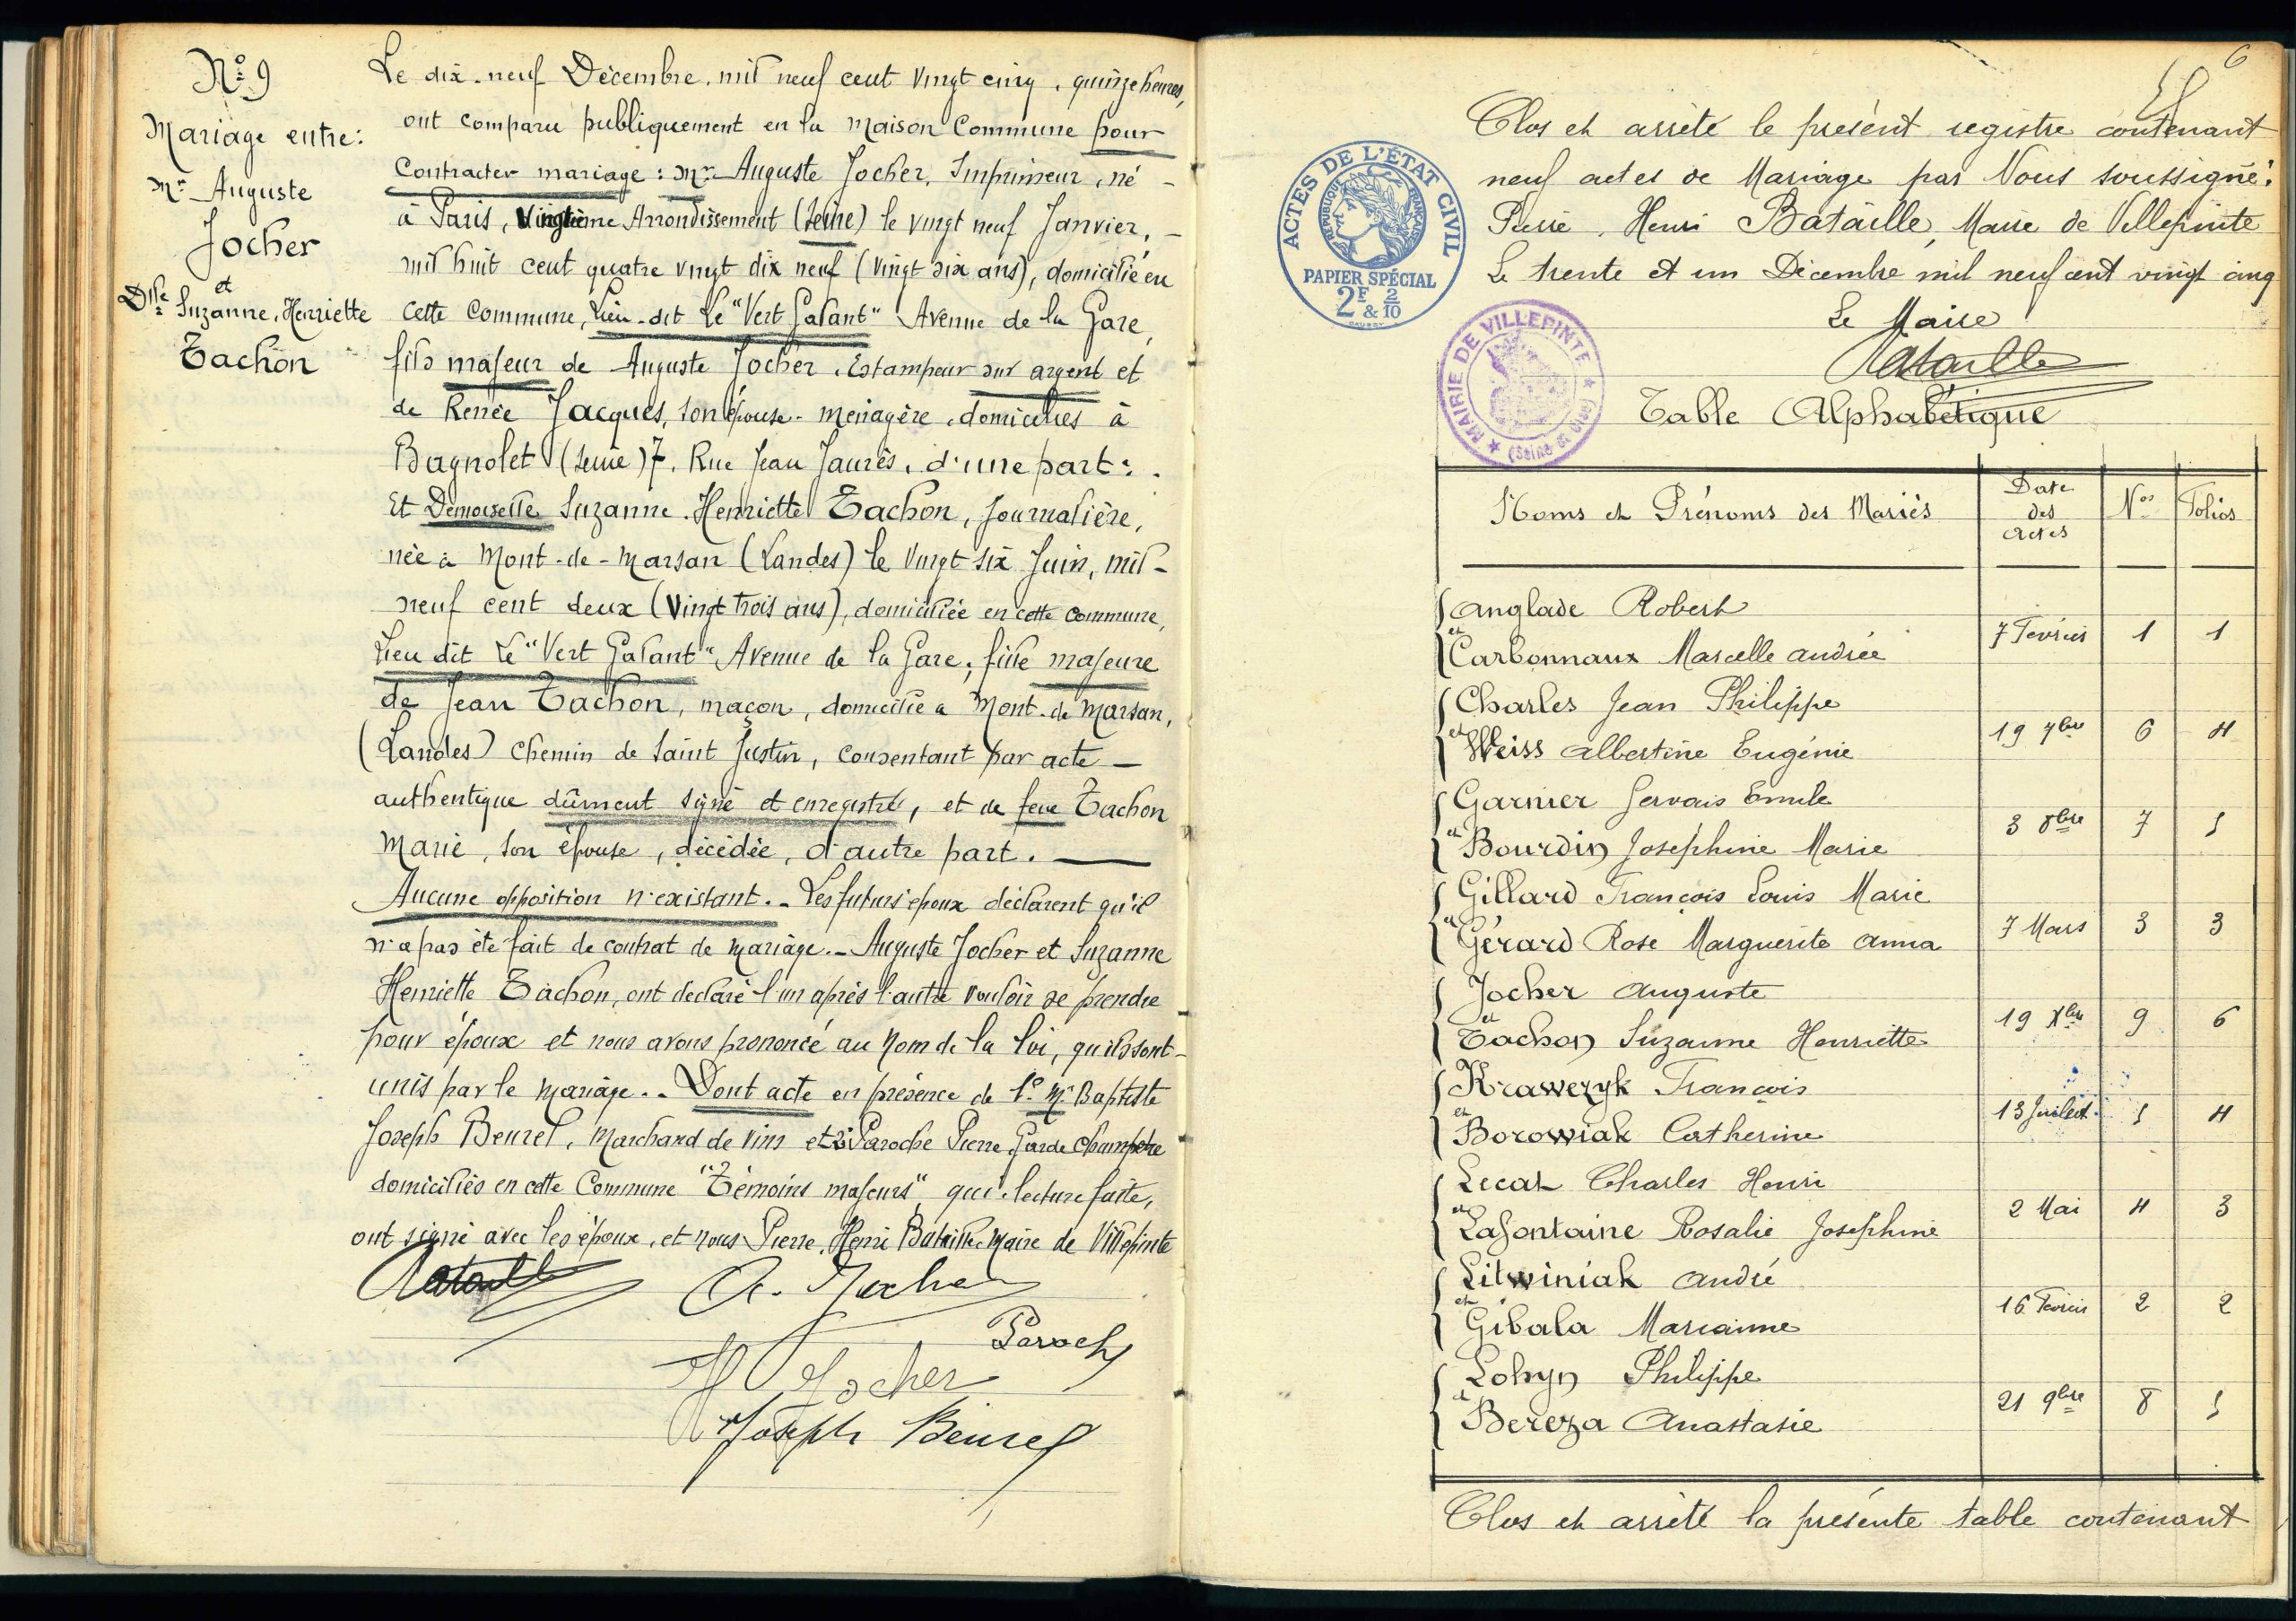 N° 9
Mariage entre:
Mr Auguste
Jocher
et
Dlle Suzanne, Henriette
Tachon
Le dix-neuf Décembre, mil neuf cent vingt cinq, quinze heures,
ont comparu publiquement en la Maison Commune pour
contracter mariage : Mr Auguste Jocher, Imprimeur, né -
à Paris, Vingtième Arrondissement (Seine) le vingt neuf Janvier, -
mil huit cent quatre vingt dix neuf (vingt six ans), domicilié en
cette Commune, Lieu-dit Le "Vert Galant" Avenue de la Gare,
fils majeur de Auguste Jocher, Estampeur sur argent et
de Renée Jacques, son épouse - ménagère, domiciliés à
Bagnolet (Seine) 7, Rue Jean Jaurès, d'une part :
Et Demoiselle Suzanne Henriette Tachon, Journalière,
née à Mont-de-Marsan (Landes) le vingt six Juin, mil -
neuf cent deux (vingt trois ans), domiciliée en cette commune,
Lieu dit Le "Vert Galant" Avenue de la Gare, fille majeure
de Jean Tachon, maçon, domicilié à Mont-de-Marsan,
(Landes) Chemin de Saint Justin, consentant par acte -
authentique dûment signé et enregistré, et de feue Tachon
Marie, son épouse, décédée, d'autre part. -
Aucune opposition n'existant. - Les futurs époux déclarent qu'il
n'a pas été fait de contrat de mariage. - Auguste Jocher et Suzanne
Henriette Tachon, ont déclaré l'un après l'autre vouloir se prendre
pour époux et nous avons prononcé au Nom de la Loi, qu'ils sont -
unis par le mariage. - Dont acte en présence de 1° Mr Baptiste
Joseph Beurel, Marchand de vins et 2° Paroche Pierre, Garde Champêtre
domiciliés en cette Commune "Témoins majeurs", qui, lecture faite,
ont signé avec les époux, et nous Pierre, Henri Bataille, Maire de Villepinte
Bataille
A. Jocher
Paroche
Jocher
Joseph Beurel
6
Clos et arrêté le présent registre contenant
neuf actes de Mariage par Nous soussigné:
Pierre, Henri Bataille, Maire de Villepinte
Le trente et un Décembre mil neuf cent vingt cinq
Le Maire
Bataille
ACTES DE L'ÉTAT CIVIL
RÉPUBLIQUE FRANÇAISE
PAPIER SPÉCIAL
2F & 2/10
MAIRIE DE VILLEPINTE
(Seine & Oise)
Table Alphabétique
Noms et Prénoms des Mariés | Date des actes | Nos | Folios
Anglade Robert
et
Carbonnaux Marcelle Andrée | 7 Février | 1 | 1
Charles Jean Philippe
et
Weiss Albertine Eugénie | 19 7bre | 6 | 4
Garnier Gervais Emile
et
Bourdin Joséphine Marie | 3 8bre | 7 | 5
Gillard François Louis Marie
et
Gérard Rose Marguerite Anna | 7 Mars | 3 | 3
Jocher Auguste
et
Tachon Suzanne Henriette | 19 Xbre | 9 | 6
Krawezyk François
et
Borowiak Catherine | 13 Juillet | 5 | 4
Lecat Charles Henri
et
Lafontaine Rosalie Joséphine | 2 Mai | 4 | 3
Litwiniak André
et
Gibala Marianne | 16 Février | 2 | 2
Lohyn Philippe
et
Bereza Anastasie | 21 9bre | 8 | 5
Clos et arrêté la présente table contenant